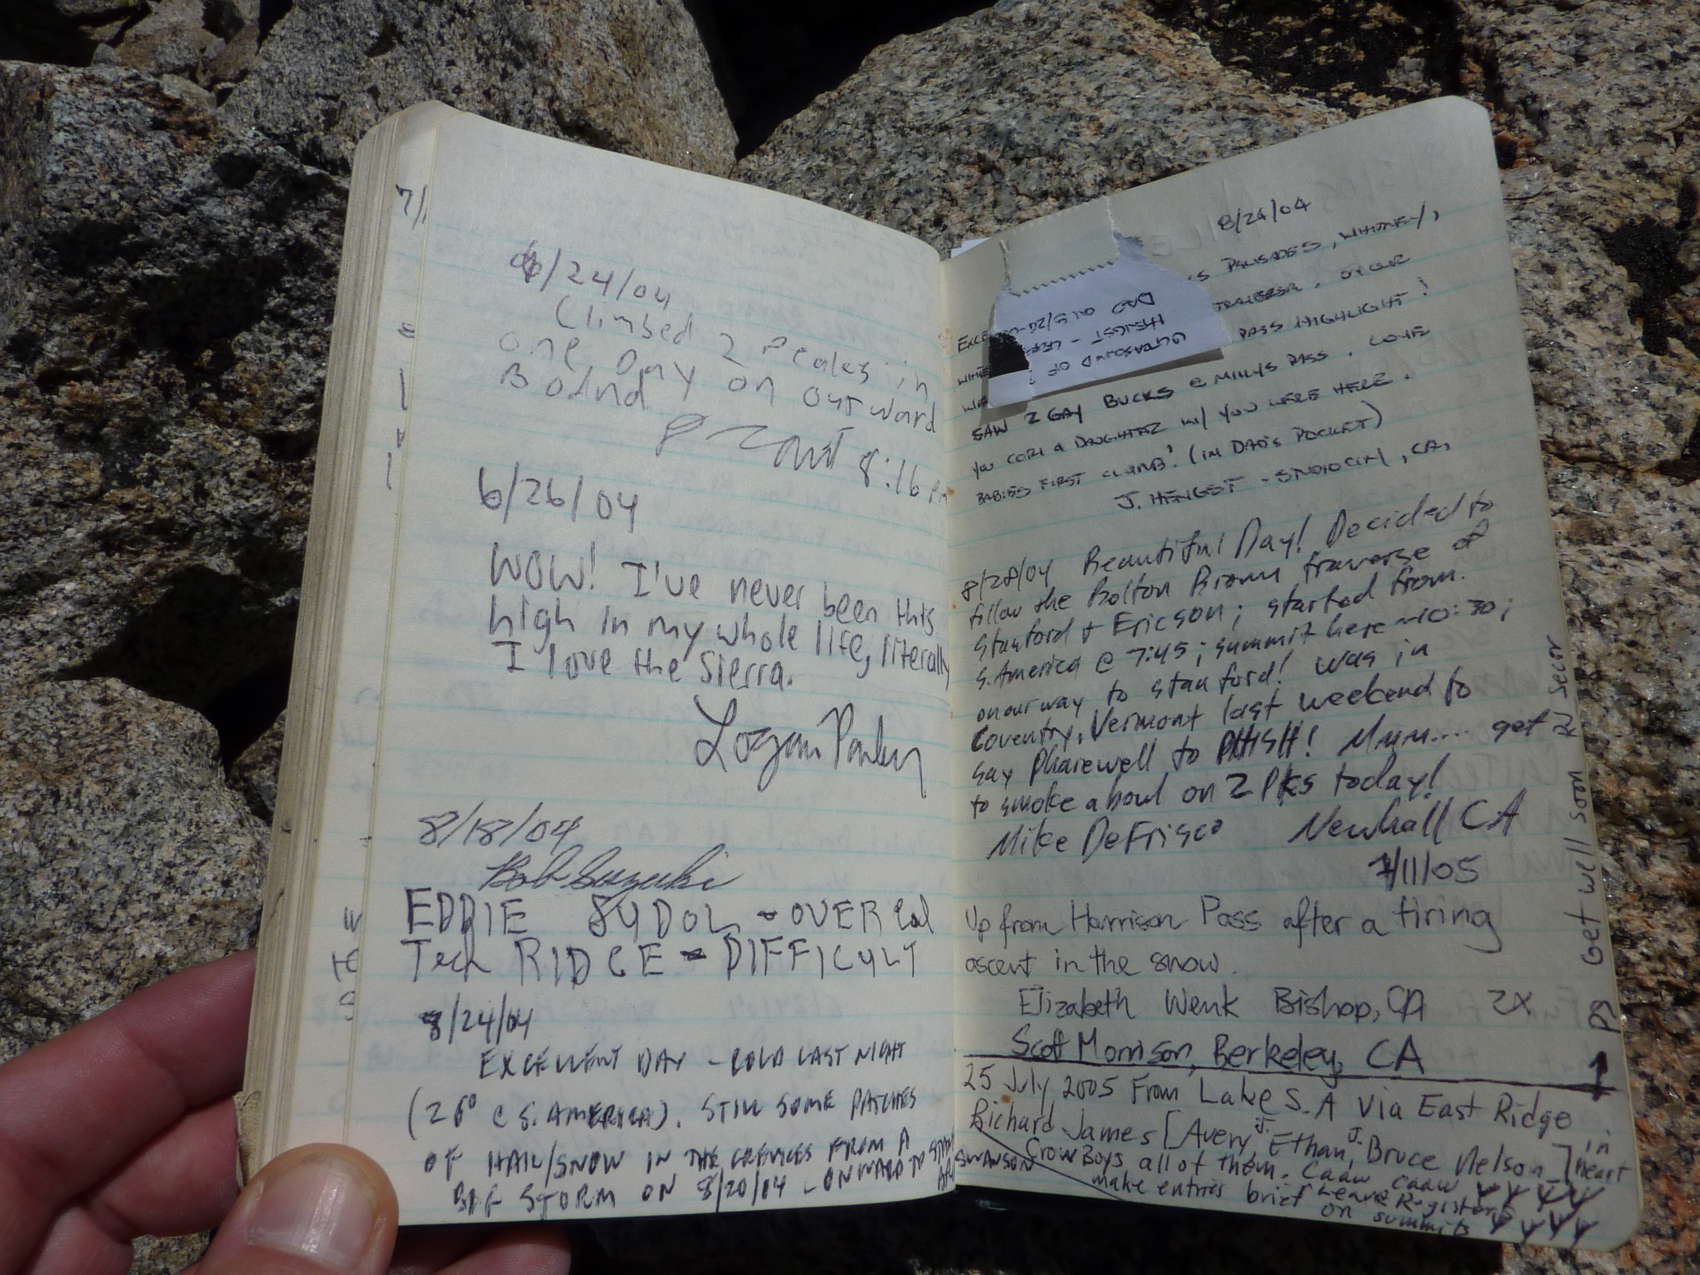 6/24/04
Climbed 2 Peaks in
one Day on outward
Bound
8:16 pm
6/26/04
WOW! I've never been this
high in my whole life, literally
I love the Sierra.
Logan
8/18/04
Bob Suzuki
EDDIE SUDOL - OVER Cal
Tech RIDGE - DIFFICULT
8/24/04
EXCELLENT DAY - COLD LAST NIGHT
(26° @ S. AMERICA). STILL SOME PATCHES
OF HAIL/SNOW IN THE CREVICES FROM A
BIG STORM ON 8/20/04 - ONWARD TO
SWANSON
8/24/04
PALISADES, WHITNEY,
PASS HIGHLIGHT!
SAW 2 GAY BUCKS @ MILLYS PASS. LOVE
YOU CORI & DAUGHTER W/ YOU WERE HERE.
BABIES FIRST CLIMB! (IN DAD'S POCKET)
J. HENGST - STUDIO CITY, CA.
8/28/04 Beautiful Day! Decided to
follow the Bolton Brown traverse of
Stanford & Ericson; started from
S. America @ 7:45; summit here ~10:30;
on our way to Stanford! Was in
Coventry, Vermont last weekend to
say Pharewell to PHISH! Mmm.... get
to smoke a bowl on 2 PKs today!
Mike DeFrisco Newhall CA
7/11/05
Up from Harrison Pass after a tiring
ascent in the snow.
Elizabeth Wenk Bishop, CA 2x
Scott Morrison, Berkeley, CA
25 July 2005 From Lake S. A via East Ridge
Richard James [Avery J. Ethan J. Bruce Nelson] in heart
Crow Boys all of them. Caaw caaw
make entries brief Leave Registers
on summits
Get well soon RJ Secor